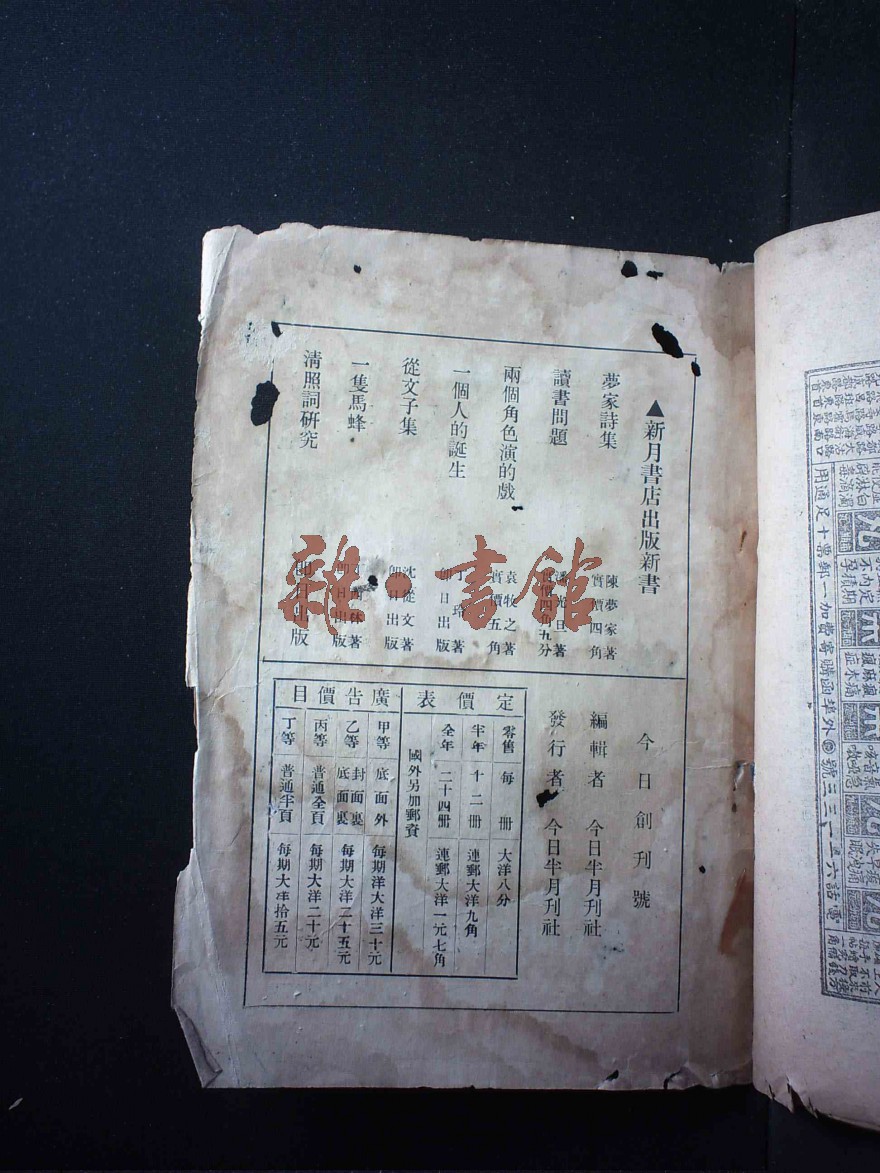 ▲新月書店出版新書
夢家詩集
陳夢家著
實價四角
讀書問題
潘光旦著
實價四角五分
兩個角色演的戲
袁牧之著
實價五角
一個人的誕生
丁玲著
即日出版
從文子集
沈從文著
即日出版
一隻馬蜂
丁西林著
即日出版
清照詞研究
即日出版
雜·書館
今日創刊號
編輯者 今日半月刊社
發行者 今日半月刊社
定價表
零售 每冊 大洋八分
半年 十二冊 連郵大洋九角
全年 二十四冊 連郵大洋一元七角
國外另加郵資
廣告價目
甲等 底面外 每期洋大洋三十元
乙等 封面裏 底面裏 每期大洋二十五元
丙等 普通全頁 每期大洋二十元
丁等 普通半頁 每期大洋拾五元
電話六一一三三號
外埠函購寄費加一郵票十足通用